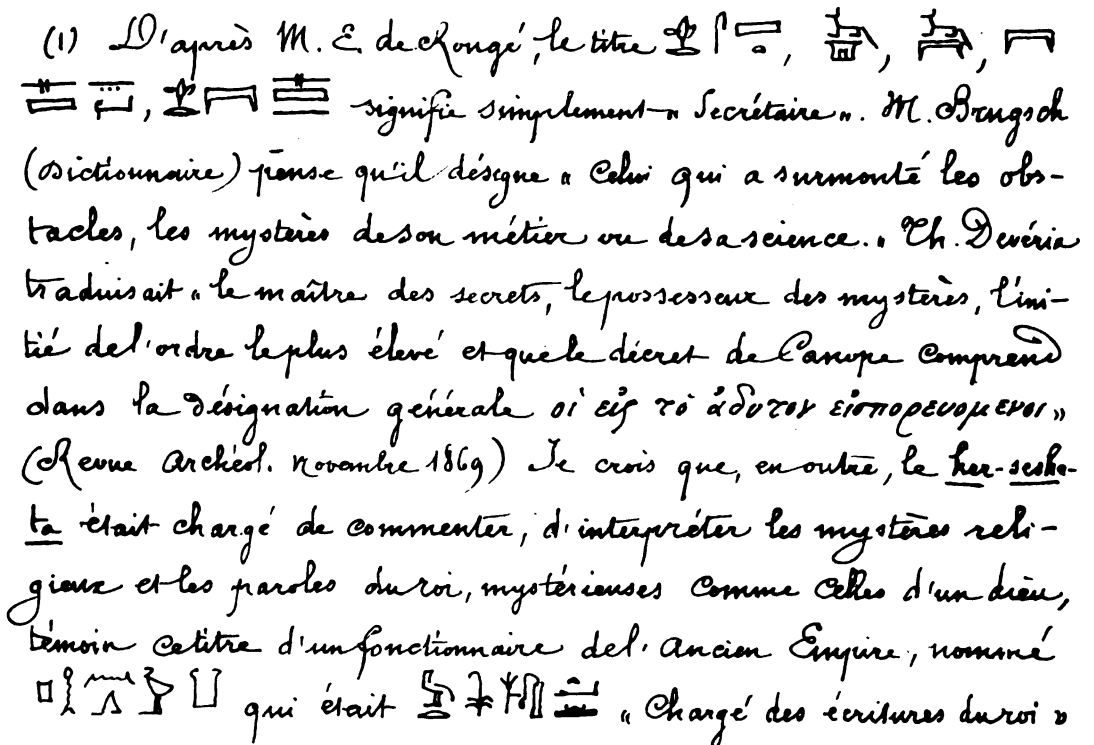 (1) D'après M. E. de Rougé, le titre
signifie simplement « Secrétaire ». M. Brugsch
(Dictionnaire) pense qu'il désigne « Celui qui a surmonté les obs-
tacles, les mystères de son métier ou de sa science. » Th. Devéria
traduisait « le maître des secrets, le possesseur des mystères, l'ini-
tié de l'ordre le plus élevé et que le décret de Canope comprend
dans la désignation générale οἱ εἰς τὸ ἄδυτον εἰσπορευομενοι »
(Revue Archéol. novembre 1869) Je crois que, en outre, le her-sesh-
ta était chargé de commenter, d'interpréter les mystères reli-
gieux et les paroles du roi, mystérieuses comme celles d'un dieu,
témoin ce titre d'un fonctionnaire de l'Ancien Empire, nommé
qui était « Chargé des écritures du roi »